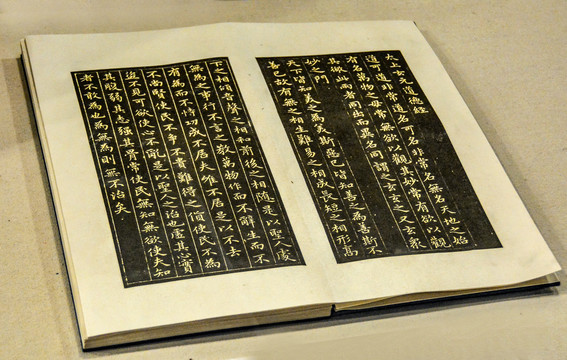 太上玄元道德經
道可道非常道名可名非常名無名天地之始
有名萬物之母常無欲以觀其妙常有欲以觀
其徼此兩者同出而異名同謂之玄玄之又玄衆
妙之門
天下皆知美之為美斯惡已皆知善之為善斯不
善已故有無之相生難易之相成長短之相形高
下之相傾音聲之相和前後之相隨是以聖人處
無為之事行不言之教萬物作而不辭生而不
有為而不恃功成不居夫唯不居是以不去
不尚賢使民不爭不貴難得之貨使民不為
盜不見可欲使心不亂是以聖人之治也虛其心實
其腹弱其志強其骨常使民無知無欲使夫知
者不敢為也為無為則無不治矣